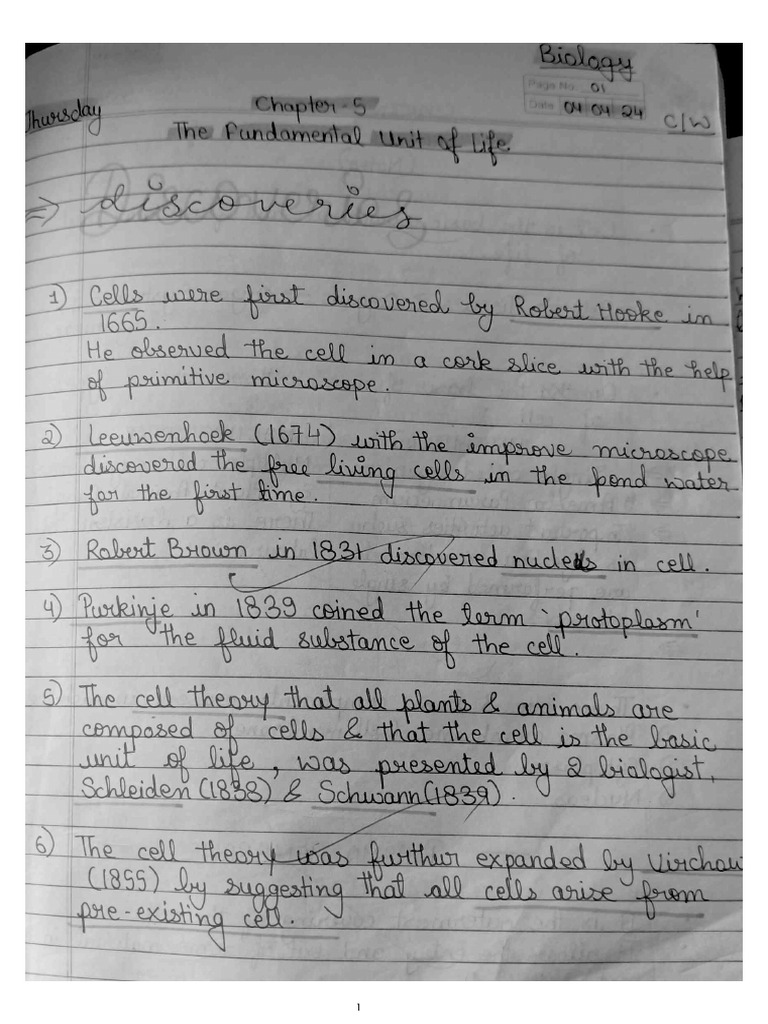 Biology
Page No. 01
Date 04 04 24
C/W
Thursday
Chapter-5
The Fundamental Unit of Life.
⇒ discoveries
1) Cells were first discovered by Robert Hooke in
1665.
He observed the cell in a cork slice with the help
of primitive microscope.
2) Leeuwenhoek (1674) with the improve microscope
discovered the free living cells in the pond water
for the first time.
3) Robert Brown in 1831 discovered nucleus in cell.
4) Purkinje in 1839 coined the term 'protoplasm'
for the fluid substance of the cell.
5) The cell theory that all plants & animals are
composed of cells & that the cell is the basic
unit of life, was presented by 2 biologist,
Schleiden (1838) & Schwann (1839).
6) The cell theory was furthur expanded by Virchow
(1855) by suggesting that all cells arise from
pre-existing cell.
1